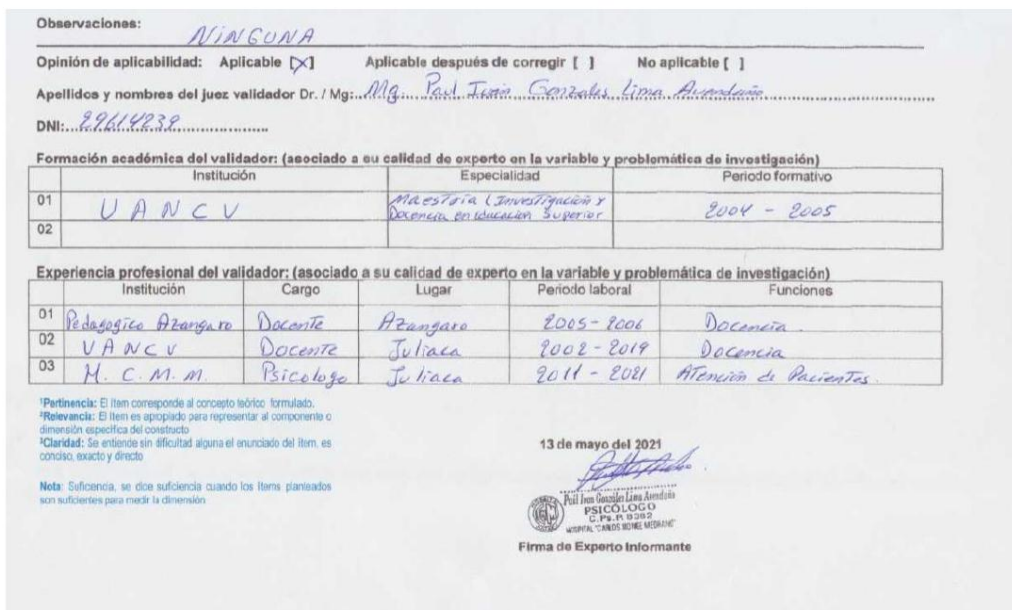 Observaciones: NINGUNA
Opinión de aplicabilidad: Aplicable [X] Aplicable después de corregir [ ] No aplicable [ ]
Apellidos y nombres del juez validador Dr. / Mg: Mg. Paul Iván Gonzales Lima Avendaño
DNI: 29614239
Formación académica del validador: (asociado a su calidad de experto en la variable y problemática de investigación)
Institución Especialidad Periodo formativo
01 UANCV Maestría (Investigación y Docencia en educación Superior 2004 - 2005
02
Experiencia profesional del validador: (asociado a su calidad de experto en la variable y problemática de investigación)
Institución Cargo Lugar Periodo laboral Funciones
01 Pedagogico Azangaro Docente Azangaro 2005 - 2006 Docencia.
02 UANCV Docente Juliaca 2002 - 2019 Docencia
03 H. C. M. M. Psicologo Juliaca 2011 - 2021 Atención de Pacientes.
¹Pertinencia: El ítem corresponde al concepto teórico formulado.
²Relevancia: El ítem es apropiado para representar al componente o
dimensión específica del constructo
³Claridad: Se entiende sin dificultad alguna el enunciado del ítem, es
conciso, exacto y directo
Nota: Suficencia, se dice suficiencia cuando los ítems planteados
son suficientes para medir la dimensión
13 de mayo del 2021
Paúl Ivan Gonzáles Lima Avendaño
PSICÓLOGO
C.Ps.P. 8382
HOSPITAL "CARLOS MONGE MEDRANO"
Firma de Experto Informante